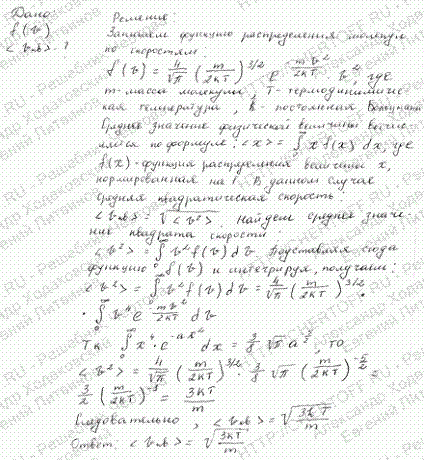 Дано:
f(v)
Решение:
Запишем функцию распределения молекул
по скоростям
f(v) = 4/√π (m/2kT)^3/2 e^-mv²/2kT v², где
m - масса молекулы, T - термодинамичес-
кая температура, k - постоянная Больцмана
Среднее значение физической величины вычис-
ляется по формуле: <x> = ∫ x f(x) dx, где
f(x) - функция распределения величины x,
нормированная на 1. В данном случае
средняя квадратическая скорость
= √<v²>. Найдем среднее значе-
ние квадрата скорости
<v²> = ∫ v² f(v) dv Подставляя сюда
функцию f(v) и интегрируя, получаем:
<v²> = ∫ v² f(v) dv = 4/√π (m/2kT)^3/2 ·
· ∫ v⁴ e^-mv²/2kT dv
Тк ∫ x⁴ e^-ax² dx = 3/8 √π a^-5/2, то
<v²> = 4/√π (m/2kT)^3/2 · 3/8 √π (m/2kT)^-5/2 =
3/2 (m/2kT)^-1 = 3kT/m
Следовательно, = √3kT/m
Ответ: = √3kT/m